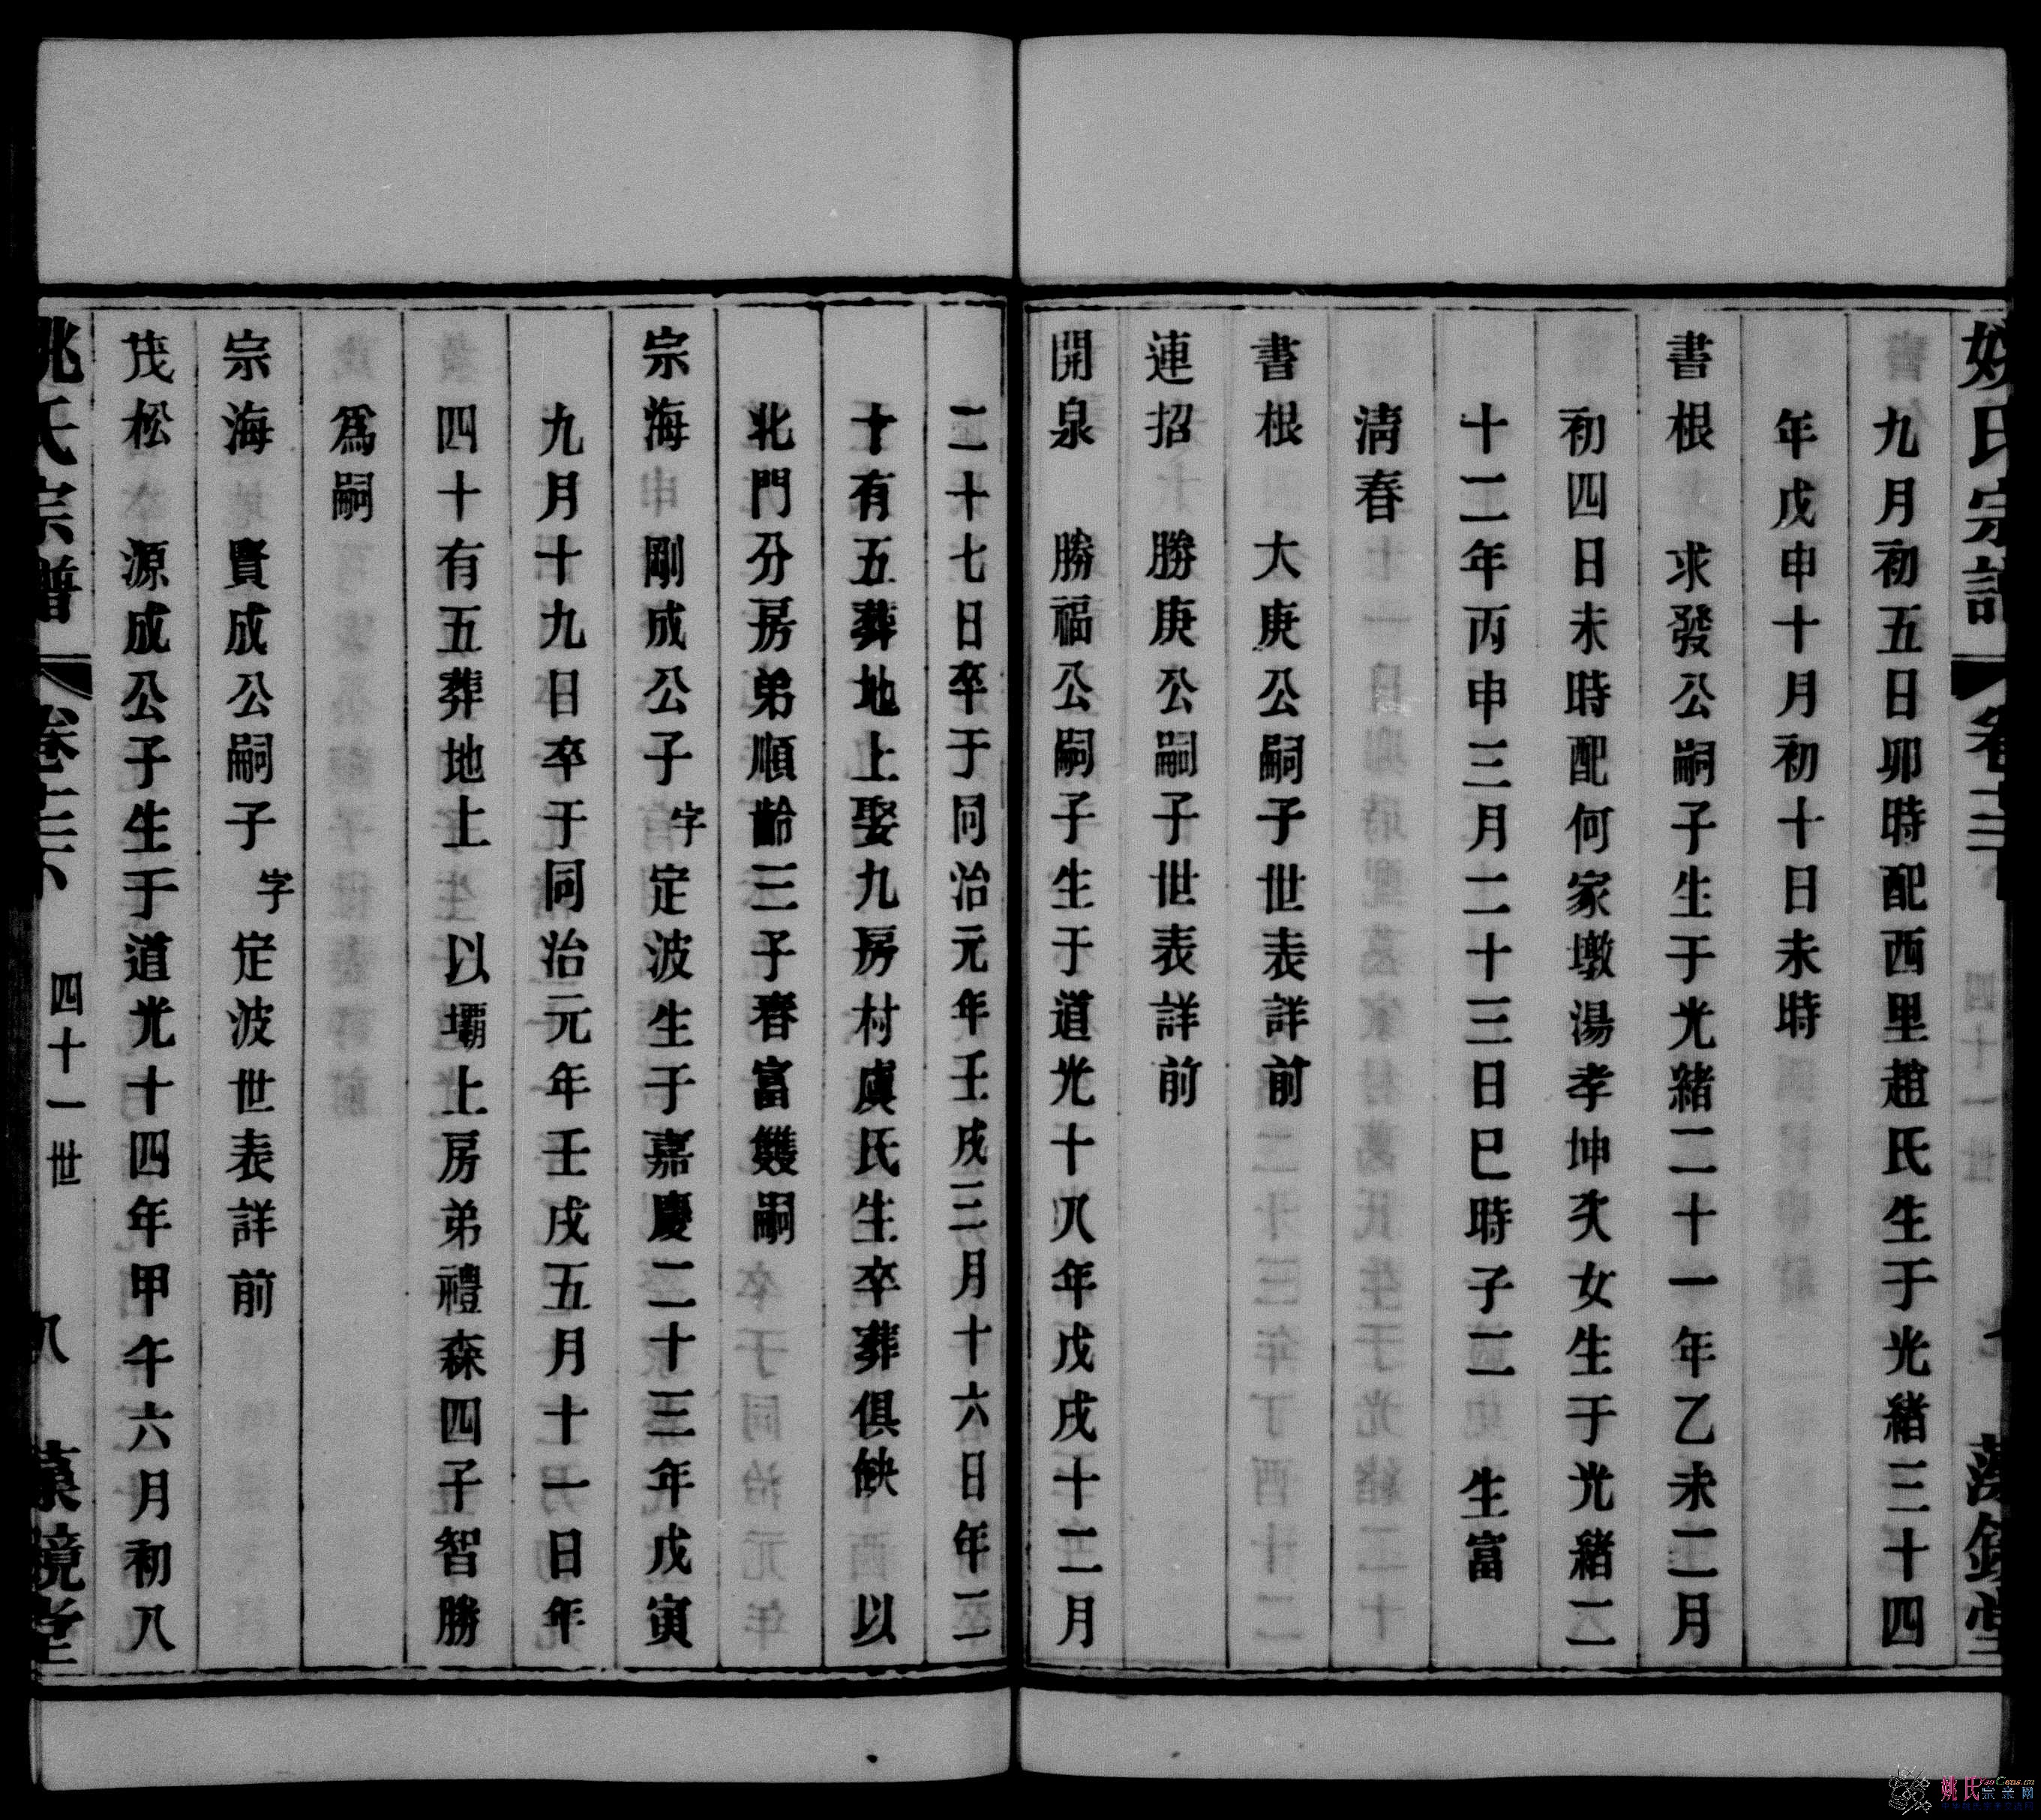 姚氏宗譜 卷十三下 四十一世 七 藻鏡堂
九月初五日卯時配西里趙氏生于光緒三十四
年戊申十月初十日未時
書根 求發公嗣子生于光緒二十一年乙未二月
初四日未時配何家墩湯孝坤次女生于光緒二
十二年丙申三月二十三日巳時子二 生富
清春
書根 大庚公嗣子世表詳前
連招 勝庚公嗣子世表詳前
開泉 勝福公嗣子生于道光十八年戊戌十二月
二十七日卒于同治元年壬戌三月十六日年二
十有五葬地上娶九房村虞氏生卒葬俱缺 以
北門分房弟順齡三子春富雙嗣
宗海 剛成公子字定波生于嘉慶二十三年戊寅
九月十九日卒于同治元年壬戌五月十一日年
四十有五葬地上 以壩上房弟禮森四子智勝
爲嗣
宗海 賢成公嗣子字定波世表詳前
茂松 源成公子生于道光十四年甲午六月初八
姚氏宗譜 卷十三下 四十一世 八 藻鏡堂
姚氏宗亲网